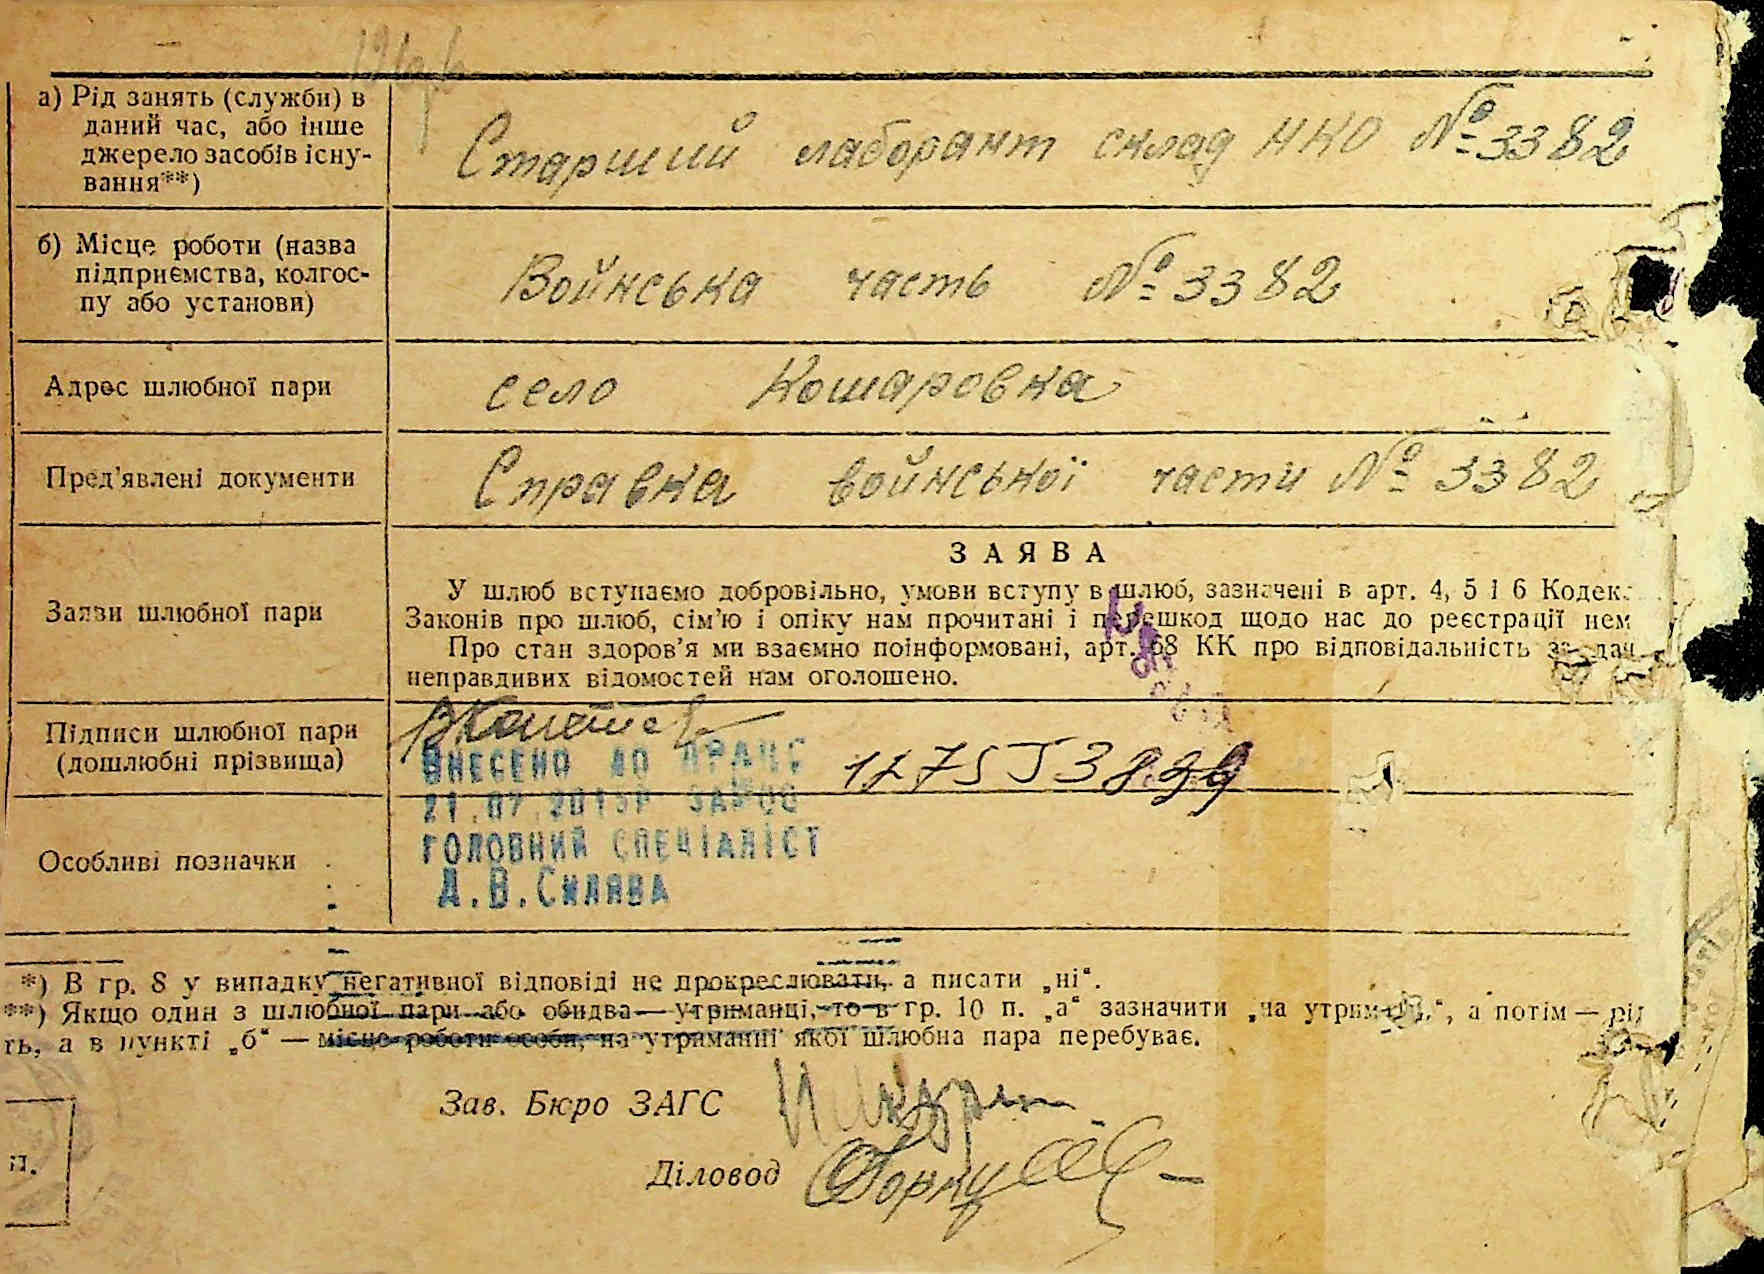 а) Рід занять (служби) в
даний час, або інше
джерело засобів існу-
вання**)
Старший лаборант склад НКО № 3382
б) Місце роботи (назва
підприємства, колгос-
пу або установи)
Войнська часть № 3382
Адрес шлюбної пари
село Кошаровка
Пред'явлені документи
Справка войнської части № 3382
Заяви шлюбної пари
ЗАЯВА
У шлюб вступаємо добровільно, умови вступу в шлюб, зазначені в арт. 4, 5 і 6 Кодек
Законів про шлюб, сім'ю і опіку нам прочитані і перешкод щодо нас до реєстрації нем
Про стан здоров'я ми взаємно поінформовані, арт. 68 КК про відповідальність за дач
неправдивих відомостей нам оголошено.
Підписи шлюбної пари
(дошлюбні прізвища)
ВНЕСЕНО ДО ДРАЦС
21.07.2015Р
ГОЛОВНИЙ СПЕЦІАЛІСТ
А.В.Силява
Особливі позначки
*) В гр. 8 у випадку негативної відповіді не прокреслювати, а писати „ні“.
**) Якщо один з шлюбної пари або обидва — утриманці, то в гр. 10 п. „а“ зазначити „на утриман.“, а потім — рід
ть, а в пункті „б“ — місце роботи особи, на утриманні якої шлюбна пара перебуває.
Зав. Бюро ЗАГС
Діловод
П.